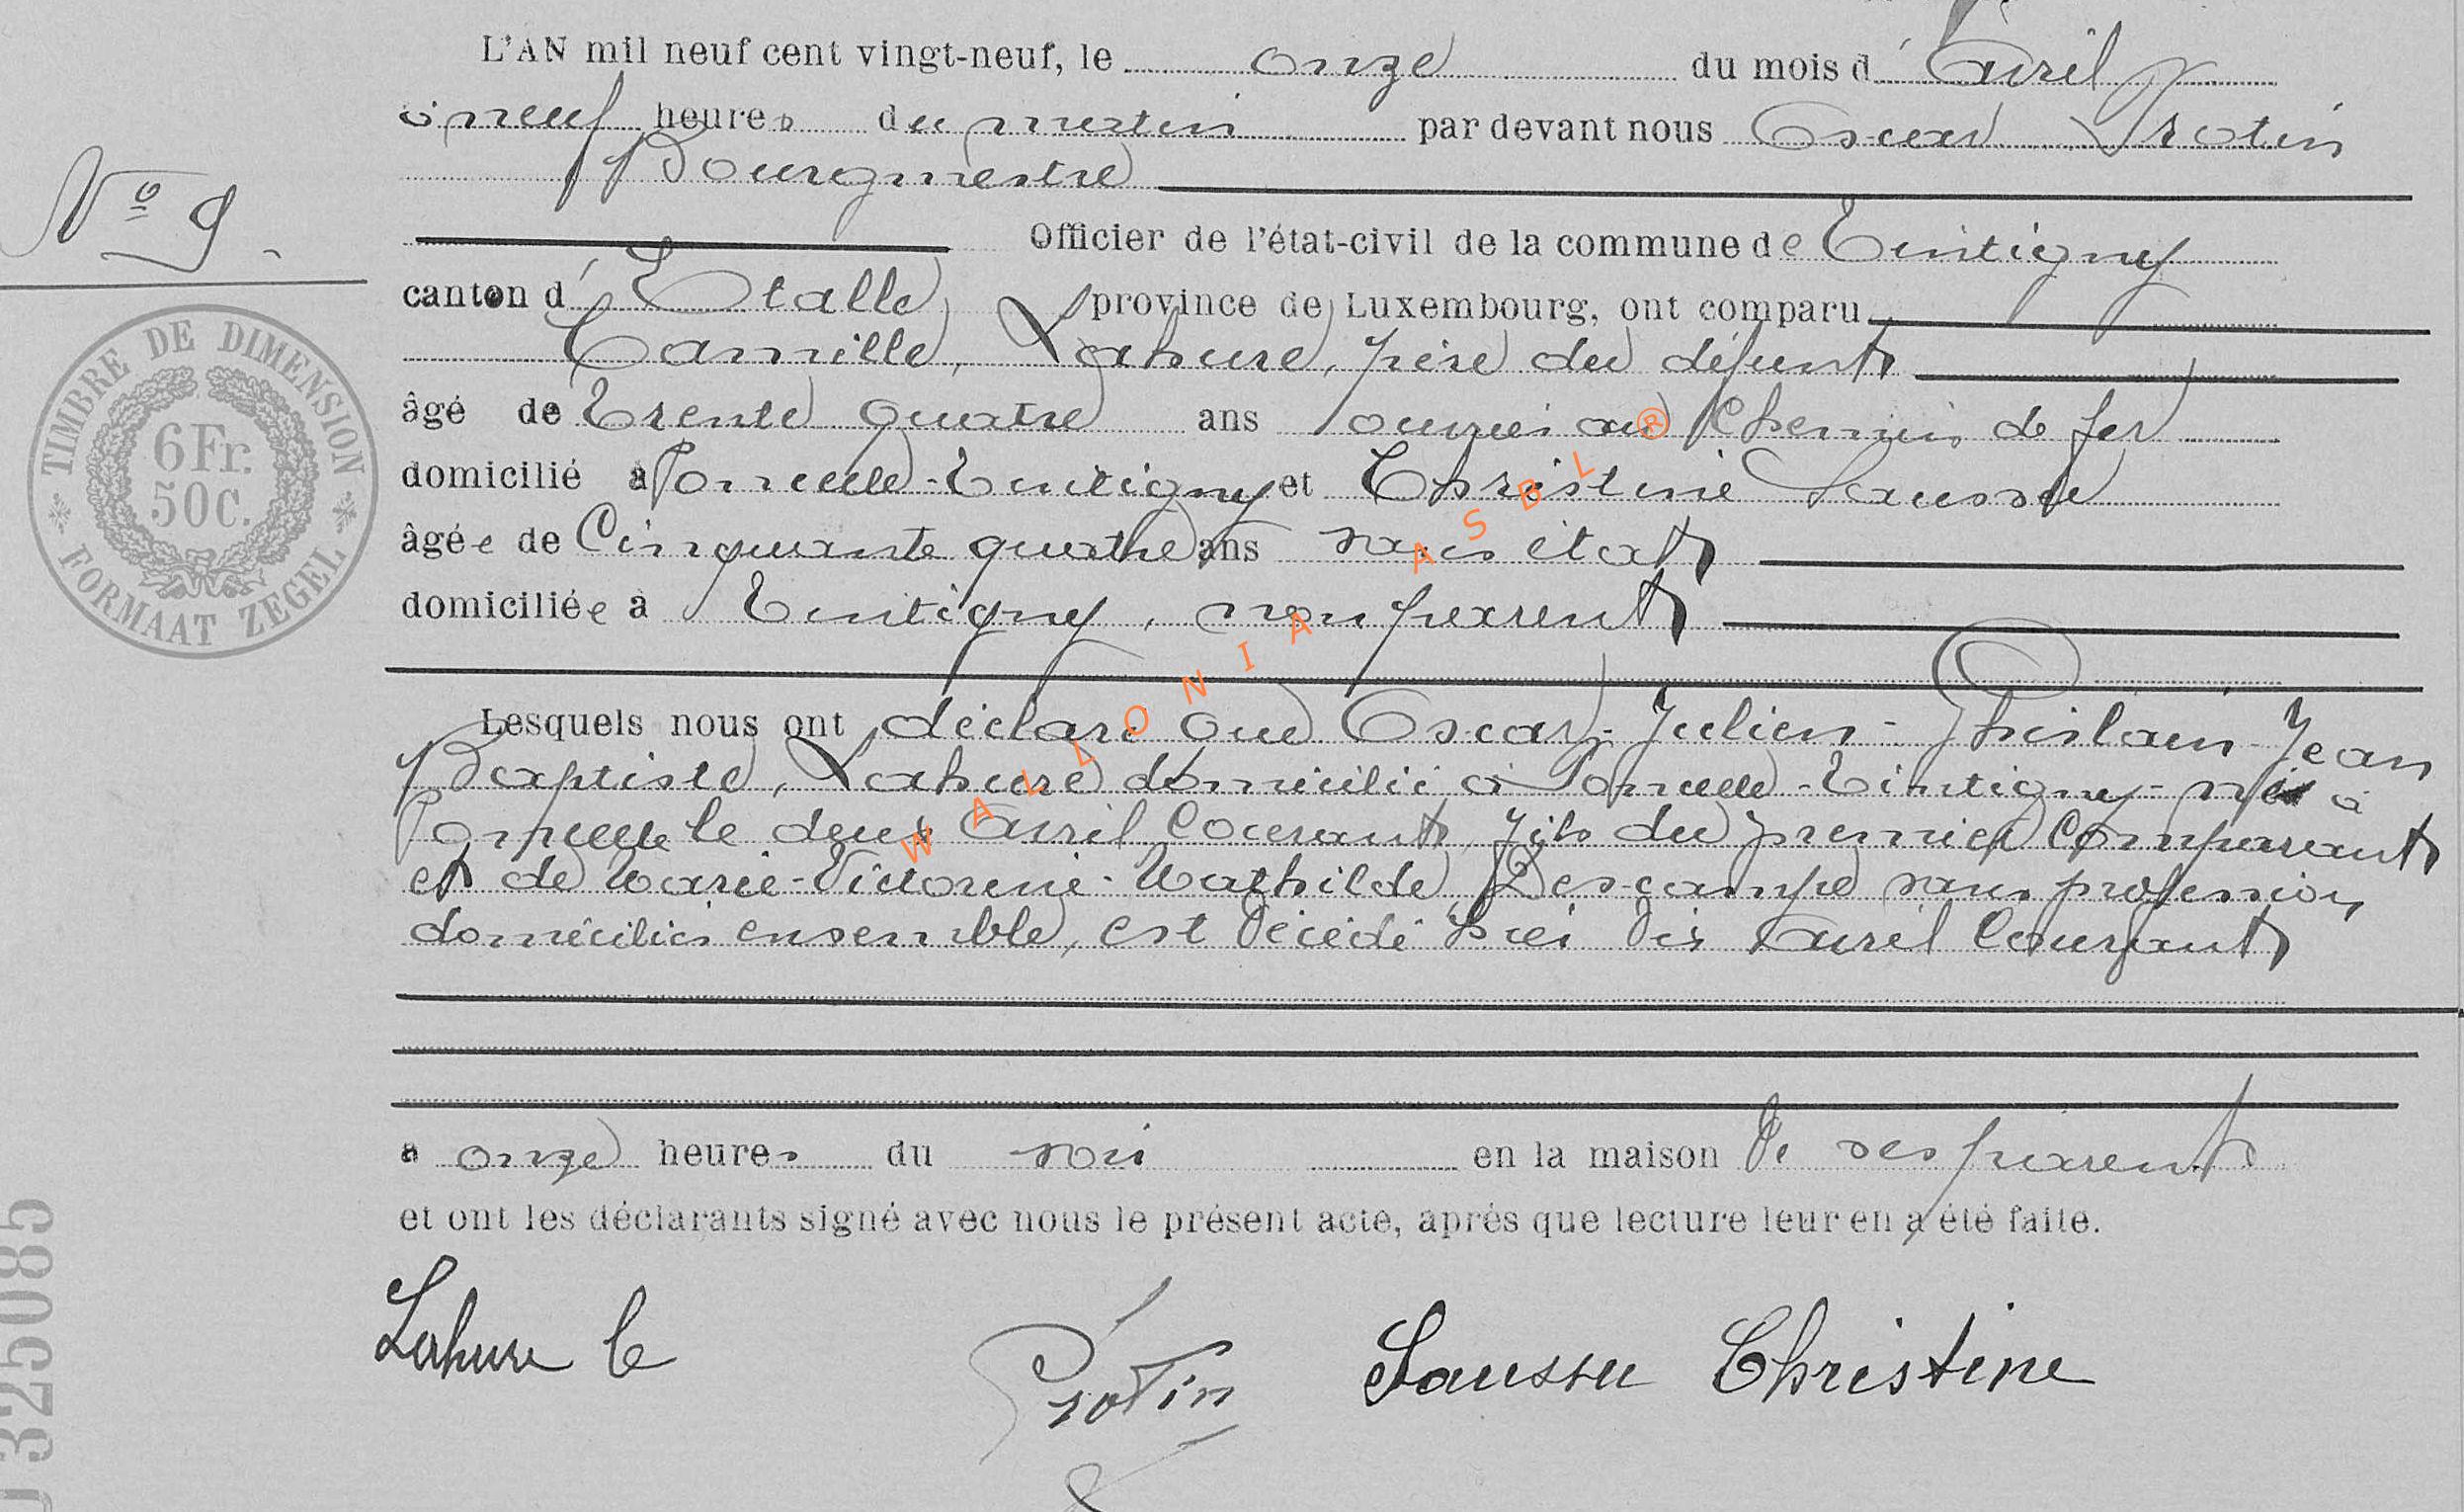 L'AN mil neuf cent vingt-neuf, le onze du mois d'avril
à neuf heures du matin par devant nous Oscar Protin
Bourgmestre
N° 9.
Officier de l'état-civil de la commune de Tintigny
canton d'Etalle, province de Luxembourg, ont comparu
Camille, Lahure, père du défunt
âgé de Trente quatre ans ouvrier au chemin de fer
domicilié à Poncelle-Tintigny et Christine Saussu
âgée de Cinquante quatre ans sans état
domiciliée à Tintigny, non parent
Lesquels nous ont déclaré que Oscar-Julien-Ghislain-Jean
Baptiste, Lahure domicilié à Poncelle-Tintigny-né à
Poncelle le deux avril courant, fils du premier comparant
et de Marie-Victorine-Mathilde, Descampe sans profession
domiciliés ensemble, est décédé hier dix avril courant
à onze heures du soir en la maison de ses parents
et ont les déclarants signé avec nous le présent acte, après que lecture leur en a été faite.
Lahure C
Protin
Saussu Christine
TIMBRE DE DIMENSION
6 Fr.
50C.
FORMAAT ZEGEL
325085
WALLONIA ASBL ®